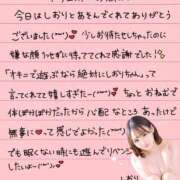 今日はしおりとあそんでくれてありがとう
ございました(*´`*)♡ 少しお待たせしちゃったのに
嫌な顔1つせずに待っててくれて感謝でした!!
「オキニで遊ぶなら絶対にしおりちゃん」って
言ってくれて嬉しすぎたー(*´`*)♡ なとおねむで
体ぽかぽかだったから心配なところあったけど
無事に♥って感じでよかった…♡
でも眠くない時にも遊んでリベンジ
したいよー(*´`*)♡
しおり